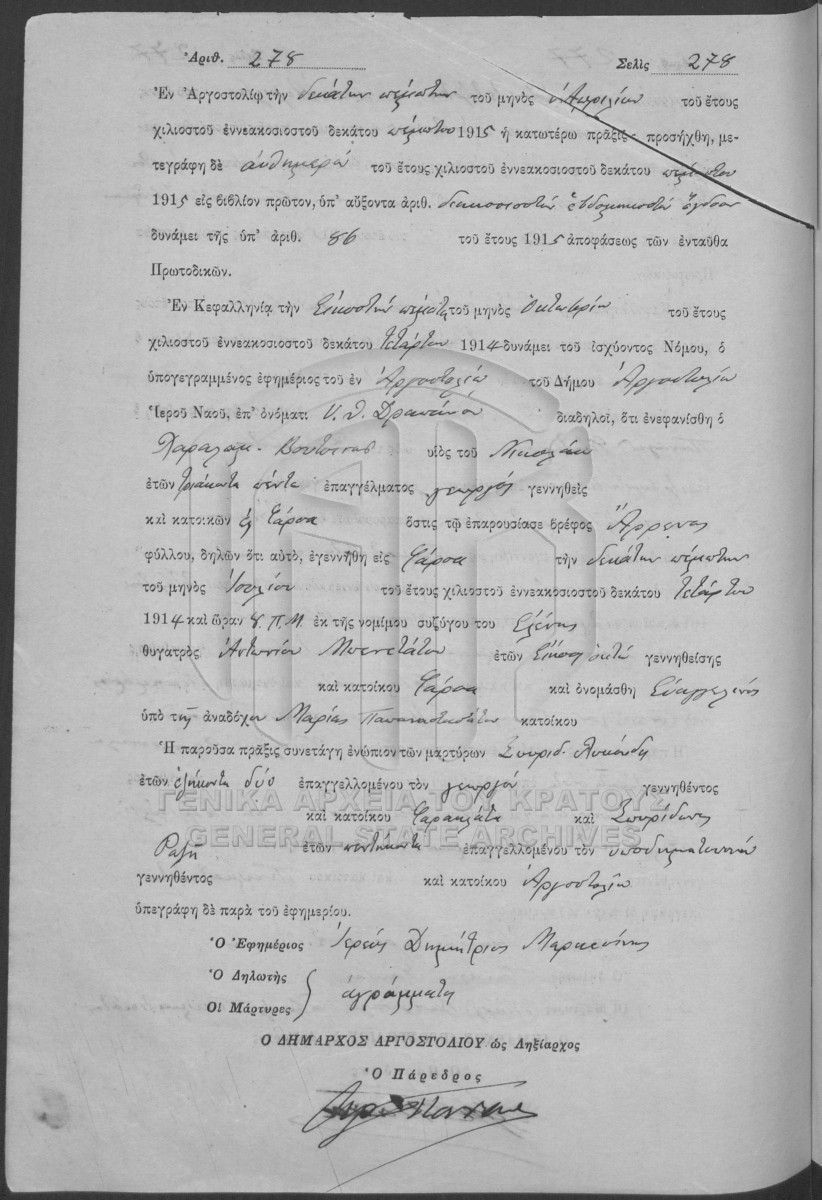 Ἀριθ. 278 Σελὶς 278
Ἐν Ἀργοστολίῳ τὴν δεκάτην πέμπτην τοῦ μηνὸς Ἀπριλίου τοῦ ἔτους
χιλιοστοῦ ἐννεακοσιοστοῦ δεκάτου πέμπτου 1915 ἡ κατωτέρω πρᾶξις προσήχθη, με-
τεγράφη δὲ αὐθημερόν τοῦ ἔτους χιλιοστοῦ ἐννεακοσιοστοῦ δεκάτου πέμπτου
1915 εἰς βιβλίον πρῶτον, ὑπ' αὔξοντα ἀριθ. διακοσιοστόν ἑβδομηκοστόν ὄγδοον
δυνάμει τῆς ὑπ' ἀριθ. 86 τοῦ ἔτους 1915 ἀποφάσεως τῶν ἐνταῦθα
Πρωτοδικῶν.
Ἐν Κεφαλληνίᾳ τὴν Εἰκοστήν πέμπτη τοῦ μηνὸς Ὀκτωβρίου τοῦ ἔτους
χιλιοστοῦ ἐννεακοσιοστοῦ δεκάτου τετάρτου 1914 δυνάμει τοῦ ἰσχύοντος Νόμου, ὁ
ὑπογεγραμμένος ἐφημέριος τοῦ ἐν Ἀργοστολίῳ τοῦ Δήμου Ἀργοστολίου
Ἱεροῦ Ναοῦ, ἐπ' ὀνόματι Υ. Θ. Δραπάνου διαδηλοῖ, ὅτι ἐνεφανίσθη ὁ
Χαραλαμ. υἱὸς τοῦ Νικολάου
ἐτῶν τριάκοντα πέντε ἐπαγγέλματος γεωργός γεννηθεὶς
καὶ κατοικῶν εἰς Φάρσα ὅστις τῷ ἐπαρουσίασε βρέφος Ἄρρενος
φύλλου, δηλῶν ὅτι αὐτὸ, ἐγεννήθη εἰς Φάρσα τὴν δεκάτην πέμπτην
τοῦ μηνὸς Ἰουλίου τοῦ ἔτους χιλιοστοῦ ἐννεακοσιοστοῦ δεκάτου τετάρτου
1914 καὶ ὥραν 8 Π.Μ. ἐκ τῆς νομίμου συζύγου του Ἑλένης
θυγατρὸς Ἀντωνίου Μπενετάτου ἐτῶν Εἴκοσι ὀκτώ γεννηθείσης
καὶ κατοίκου Φάρσα καὶ ὀνομάσθη Εὐαγγελινός
ὑπὸ τῆς ἀναδόχου Μαρίας κατοίκου
Ἡ παροῦσα πρᾶξις συνετάγη ἐνώπιον τῶν μαρτύρων Σπυριδ.
ἐτῶν ἑξήκοντα δύο ἐπαγγελλομένου τὸν γεωργόν γεννηθέντος
ΓΕΝΙΚΑ ΑΡΧΕΙΑ ΤΟΥ ΚΡΑΤΟΥΣ
καὶ κατοίκου Φαρακλάτα καὶ Σπυρίδωνος
GENERAL STATE ARCHIVES
Ραζή ἐτῶν πεντήκοντα ἐπαγγελλομένου τὸν ὑποδηματοποιόν
γεννηθέντος καὶ κατοίκου Ἀργοστολίου
ὑπεγράφη δὲ παρὰ τοῦ ἐφημερίου.
Ὁ Ἐφημέριος Ἱερεύς Δημήτριος
Ὁ Δηλωτὴς
Οἱ Μάρτυρες ἀγράμματοι
Ο ΔΗΜΑΡΧΟΣ ΑΡΓΟΣΤΟΛΙΟΥ ὡς Ληξίαρχος
Ὁ Πάρεδρος